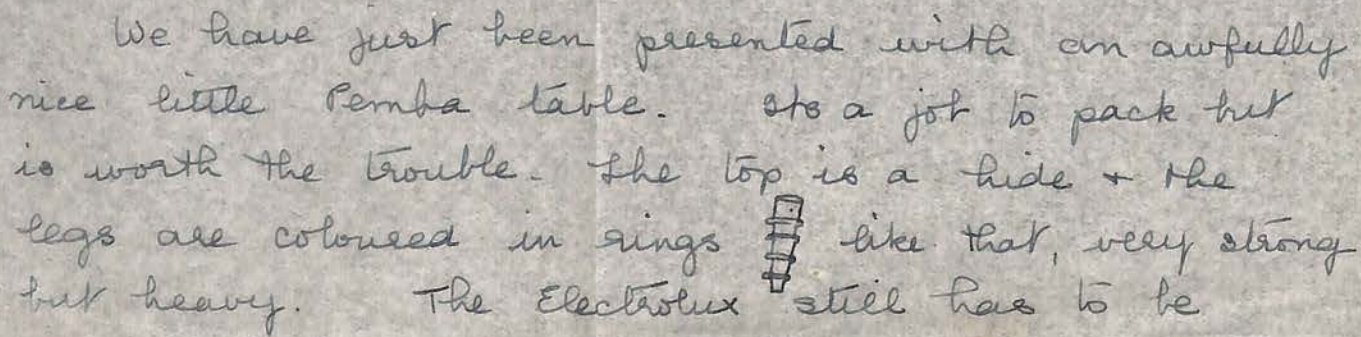 We have just been presented with an awfully
nice little Pemba table. Its a job to pack but
is worth the trouble. The top is a hide + the
legs are coloured in rings like that, very strong
but heavy. The Electrolux still has to be